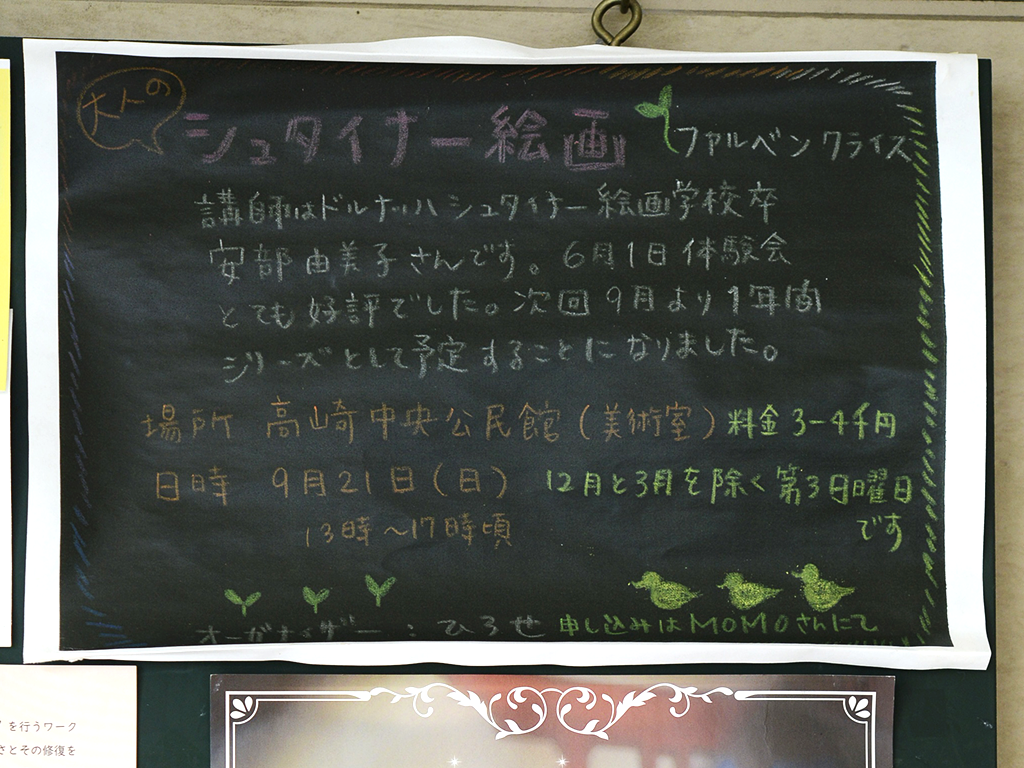 大人の
シュタイナー絵画 ファルベンクライズ
講師はドルナッハシュタイナー絵画学校卒
安部由美子さんです。6月1日体験会
とても好評でした。次回9月より1年間
シリーズとして予定することになりました。
場所 高崎中央公民館(美術室) 料金3-4千円
日時 9月21日(日) 12月と3月を除く第3日曜日
です
13時〜17時頃
オーガナイザー:ひろせ 申し込みはMOMOさんにて
を行うワーク
さとその修復を